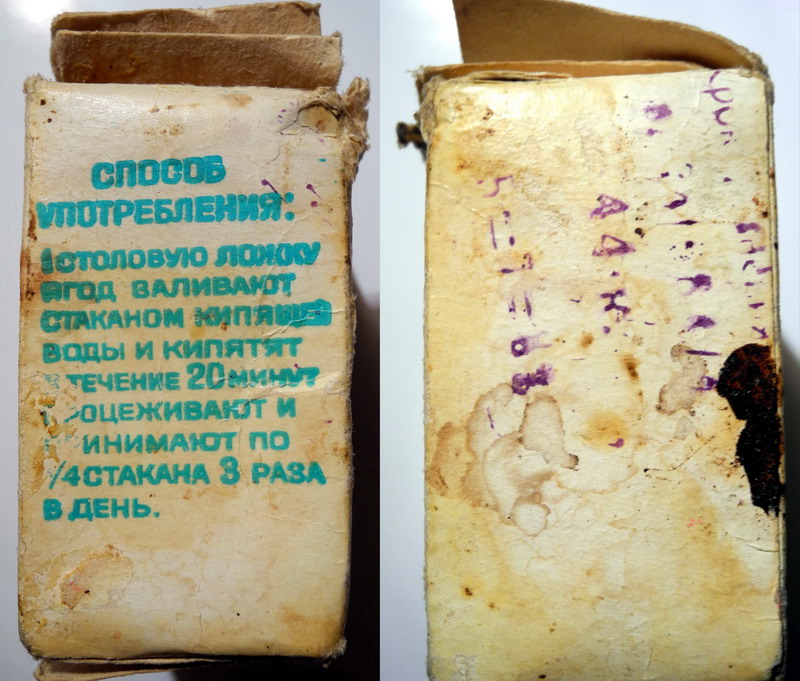 СПОСОБ
УПОТРЕБЛЕНИЯ:
1 СТОЛОВУЮ ЛОЖКУ
ЯГОД ЗАЛИВАЮТ
СТАКАНОМ КИПЯЩЕЙ
ВОДЫ И КИПЯТЯТ
В ТЕЧЕНИЕ 20 МИНУТ
ПРОЦЕЖИВАЮТ И
ПРИНИМАЮТ ПО
1/4 СТАКАНА 3 РАЗА
В ДЕНЬ.